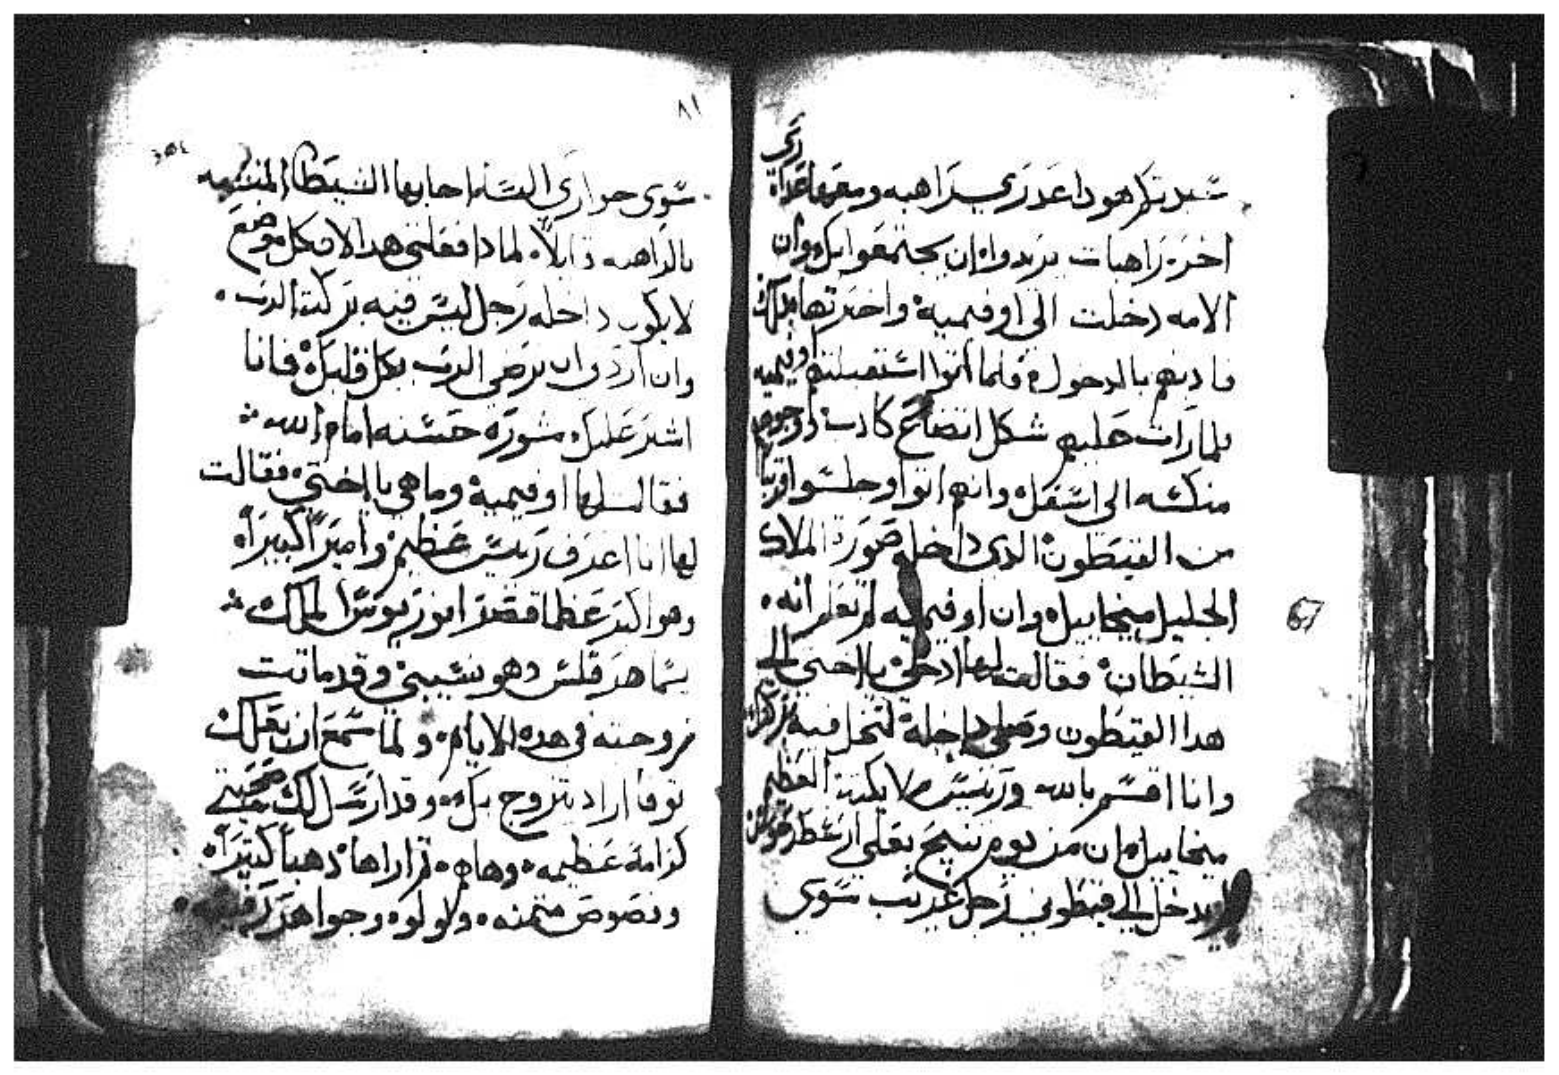 ستي تكر هودا عدري راهبه ومعها عداه
اخره راهبات يريدوا ان يجتمعوا بك وان
الامه دخلت الى اوفيميه واخبرتها بذلك
فادنهم بالدخول فلما اتوا استقبلتهم اوفيميه
فلما رات عليهم شكل اتضاع كادب ووجوههم
منكسه الى اسفل وانهم اتوا وجلسوا قريبا
من القيطون الدى داخله صورة الملاك
الجليل ميخاييل وان اوفيميه لم تعلم انه
الشيطان فقالت لها ادخلى يا اختي الي
هدا القيطون وصلي داخله لتحل فيه بركتك
وانا اقسم بالله وريس ملايكته العظيم
ميخاييل ان من يوم تنيح بعلي ارسطرخوس
لم يدخل الي قيطوني رجل غريب سوى
٨١
سوى جواري النسا اجابها الشيطان المتشبه
بالراهبه قايلا لمادا فعلتي هدا لان كل موضع
لا يكون داخله رجل ليس فيه بركة الرب
وان اردتى ان يرضى الرب بكل قلبك فانا
اشير عليك مشورة حسنه امام الله
فقالت لها اوفيمية وما هي يا اختي فقالت
لها انا اعرف رييس عظيم واميرا كبيرا
وهو اكبر عظما قصر انوريوس الملك
يسما هدرقلس وهو نسيبي وقد ماتت
زوجته في هده الايام ولما سمع ان بعلك
توفا اراد يتزوج بك وقد ارسل لك صحبتي
كرامة عظيمه وهاهم قرارها دهبا كثيرا
وفصوص مثمنه ولولوه وجواهر رفيعه
67